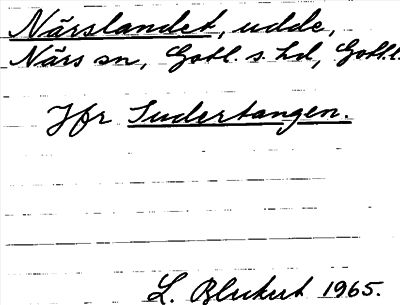 Närslandet, udde,
Närs sn, Gotl. s. hd, Gotl. l.
Jfr Sudertangen.
L. Blukert 1965.